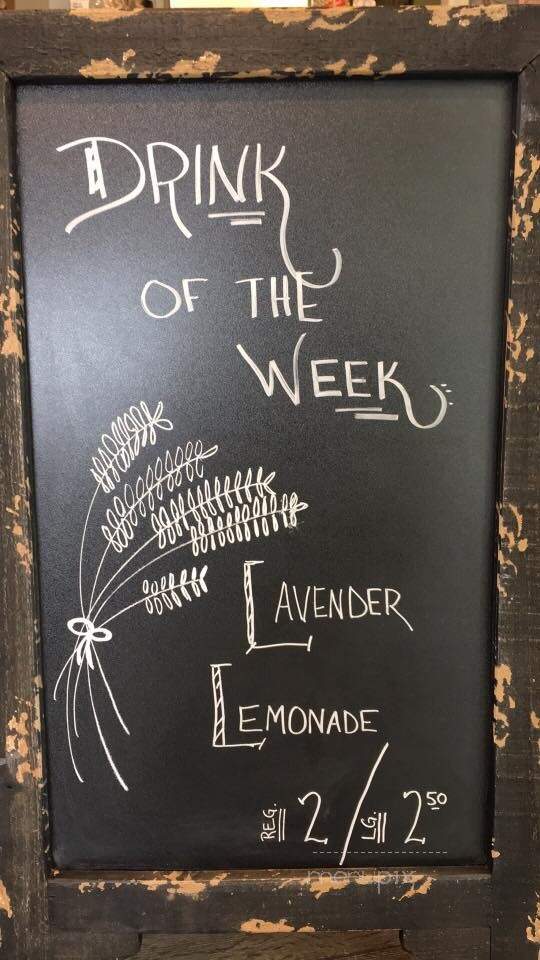 DRINK
OF THE
WEEK
LAVENDER
LEMONADE
REG. 2 / LG. 2.50
menupix